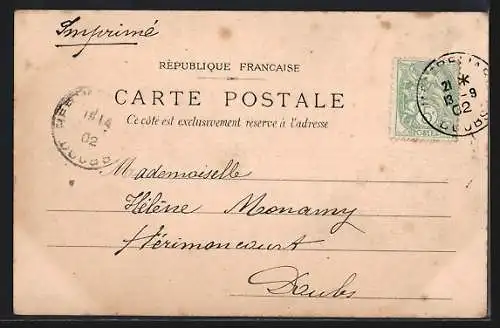 Imprimé
RÉPUBLIQUE FRANCAISE
CARTE POSTALE
Ce côté est exclusivement réservé à l'adresse
02
DOUBS
9
02
DOUBS
Mademoiselle
Hélène Monamy
Hérimoncourt
Doubs